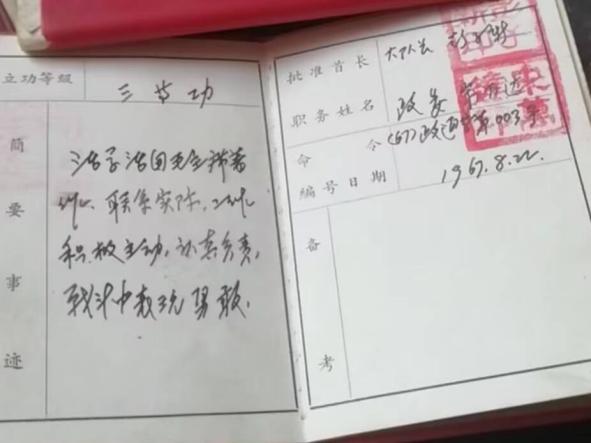 立功等级
三等功
简要事迹
活学活用毛主席著
作、联系实际，工作
积极主动，认真负责，
战斗中表现勇敢.
批准首长
大队长
职务姓名
政委
命令
(67)政通字第003号
编号日期
1967.8.22.
备考